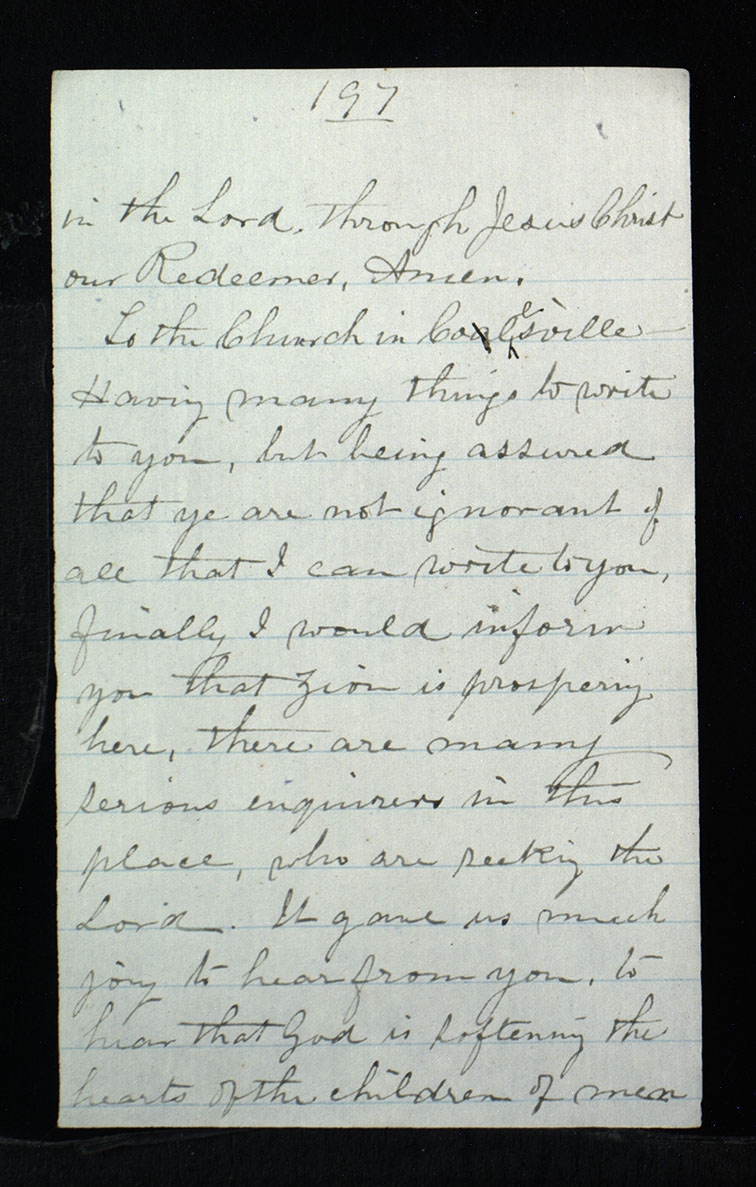 197
in the Lord, through Jesus Christ
our Redeemer, Amen.
To the Church in Colesville—
Having many things to write
to you, but being assured
that ye are not ignorant of
all that I can write to you,
finally I would inform
you that Zion is prospering
here, there are many
serious enquirers in this
place, who are seeking the
Lord. It gave us much
joy to hear from you, to
hear that God is softening the
hearts of the children of men